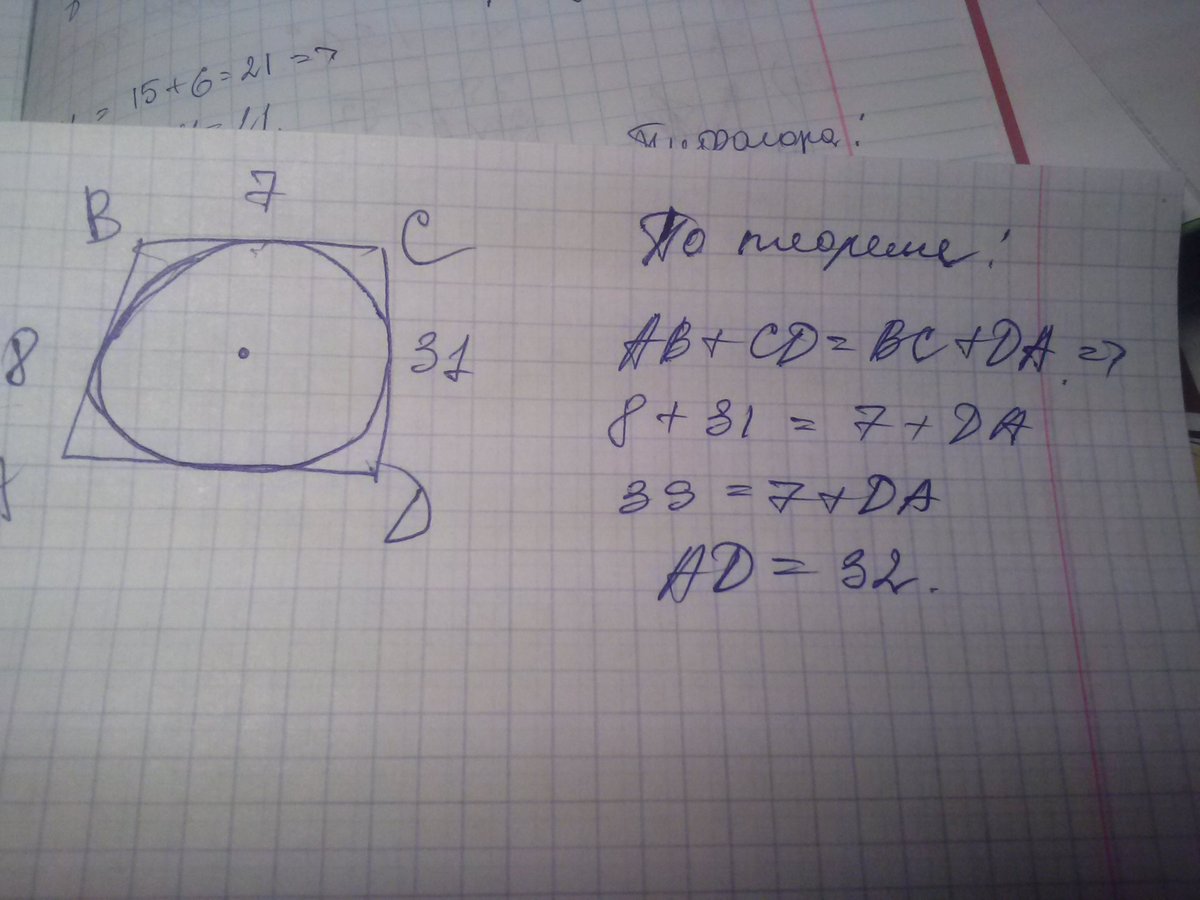 15+6=21 =>
B
7
C
8
31
D
По теореме:
AB+CD=BC+DA =>
8+31 = 7+DA
39 = 7+DA
AD = 32.